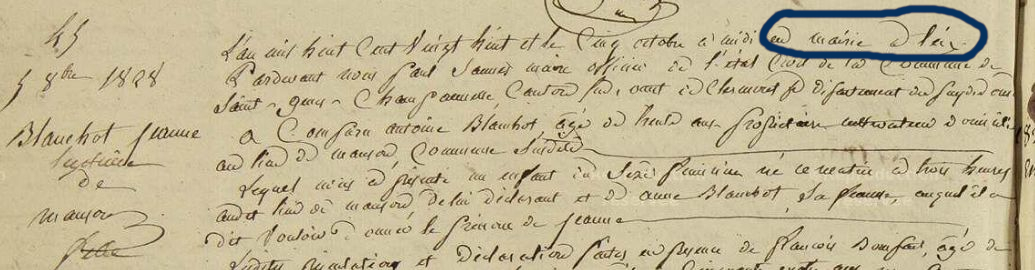 45
5 8bre 1828
Blanchot jeanne
légitime
de
manson
L'an mil huit Cent Vingt huit et le Cinq octobre à midi en mairie à
Pardevant nous paul maire officier de l'état Civil de la Commune de
Saint-genes-Champanelle, Canton sud, ouest de Clermont fd département du puydedome
a Comparu antoine Blanchot, âgé de trente ans propriétaire domicilié
au lieu de manson, Commune susdite
Lequel nous a présenté un enfant du Sexe féminin né ce matin à trois heures
audit lieu de manson, de lui déclarant et de anne Blanchot, Sa femme, auquel il a
dit Vouloir donner le prénom de jeanne
Lesdites présentation et déclaration faites en présence de françois Bonfait, âgé de